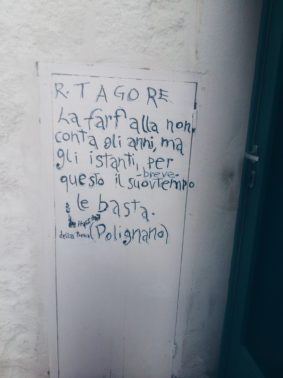 R. TAGORE
La farfalla non
conta gli anni, ma
gli istanti, per
questo il suo breve tempo
le basta.
(Polignano)